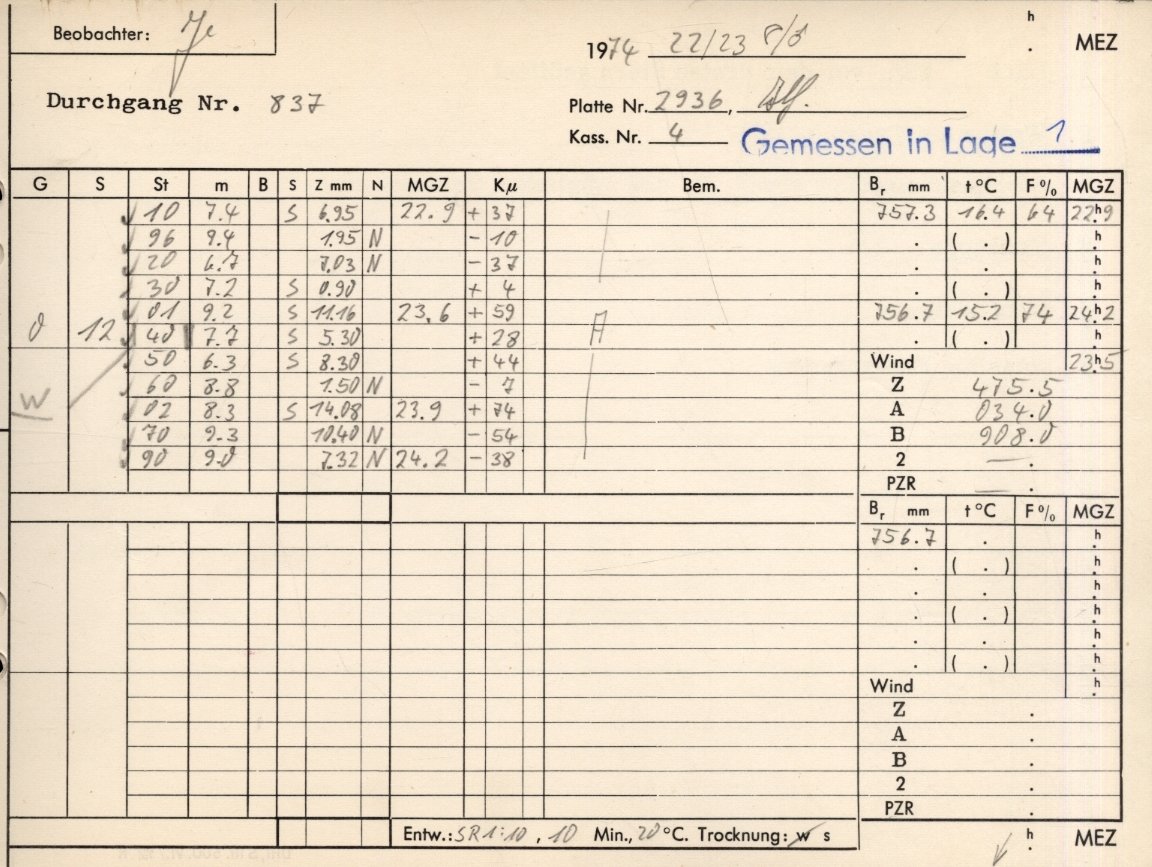 Beobachter: h
1974 22/23 MEZ
Durchgang Nr. 837
Platte Nr. 2936,
Kass. Nr. 4 Gemessen in Lage 1
G S St m B S Z mm N MGZ Kμ Bem. Br mm t °C F % MGZ
10 7.4 S 6.95 22.9 + 37 757.3 16.4 64 22h9
96 9.4 1.95 N - 10 . ( . ) h
20 6.7 7.03 N - 37 . . h
30 7.2 S 0.90 + 4 . ( . ) h
01 9.2 S 11.16 23.6 + 59 756.7 15.2 74 24h2
0 12 40 7.7 S 5.30 + 28 A . ( . ) h
50 6.3 S 8.30 + 44 Wind 23h5
W 60 8.8 1.50 N - 7 Z 475.5
02 8.3 S 14.08 23.9 + 74 A 034.0
70 9.3 10.40 N - 54 B 908.0
90 9.0 7.32 N 24.2 - 38 2 — .
PZR — .
Br mm t °C F % MGZ
756.7 . h
. ( . ) h
. . h
. ( . ) h
. . h
. ( . ) h
Wind h
Z .
A .
B .
2 .
PZR .
Entw.: SR 1:10 , 10 Min., 20 °C. Trocknung: w s h MEZ